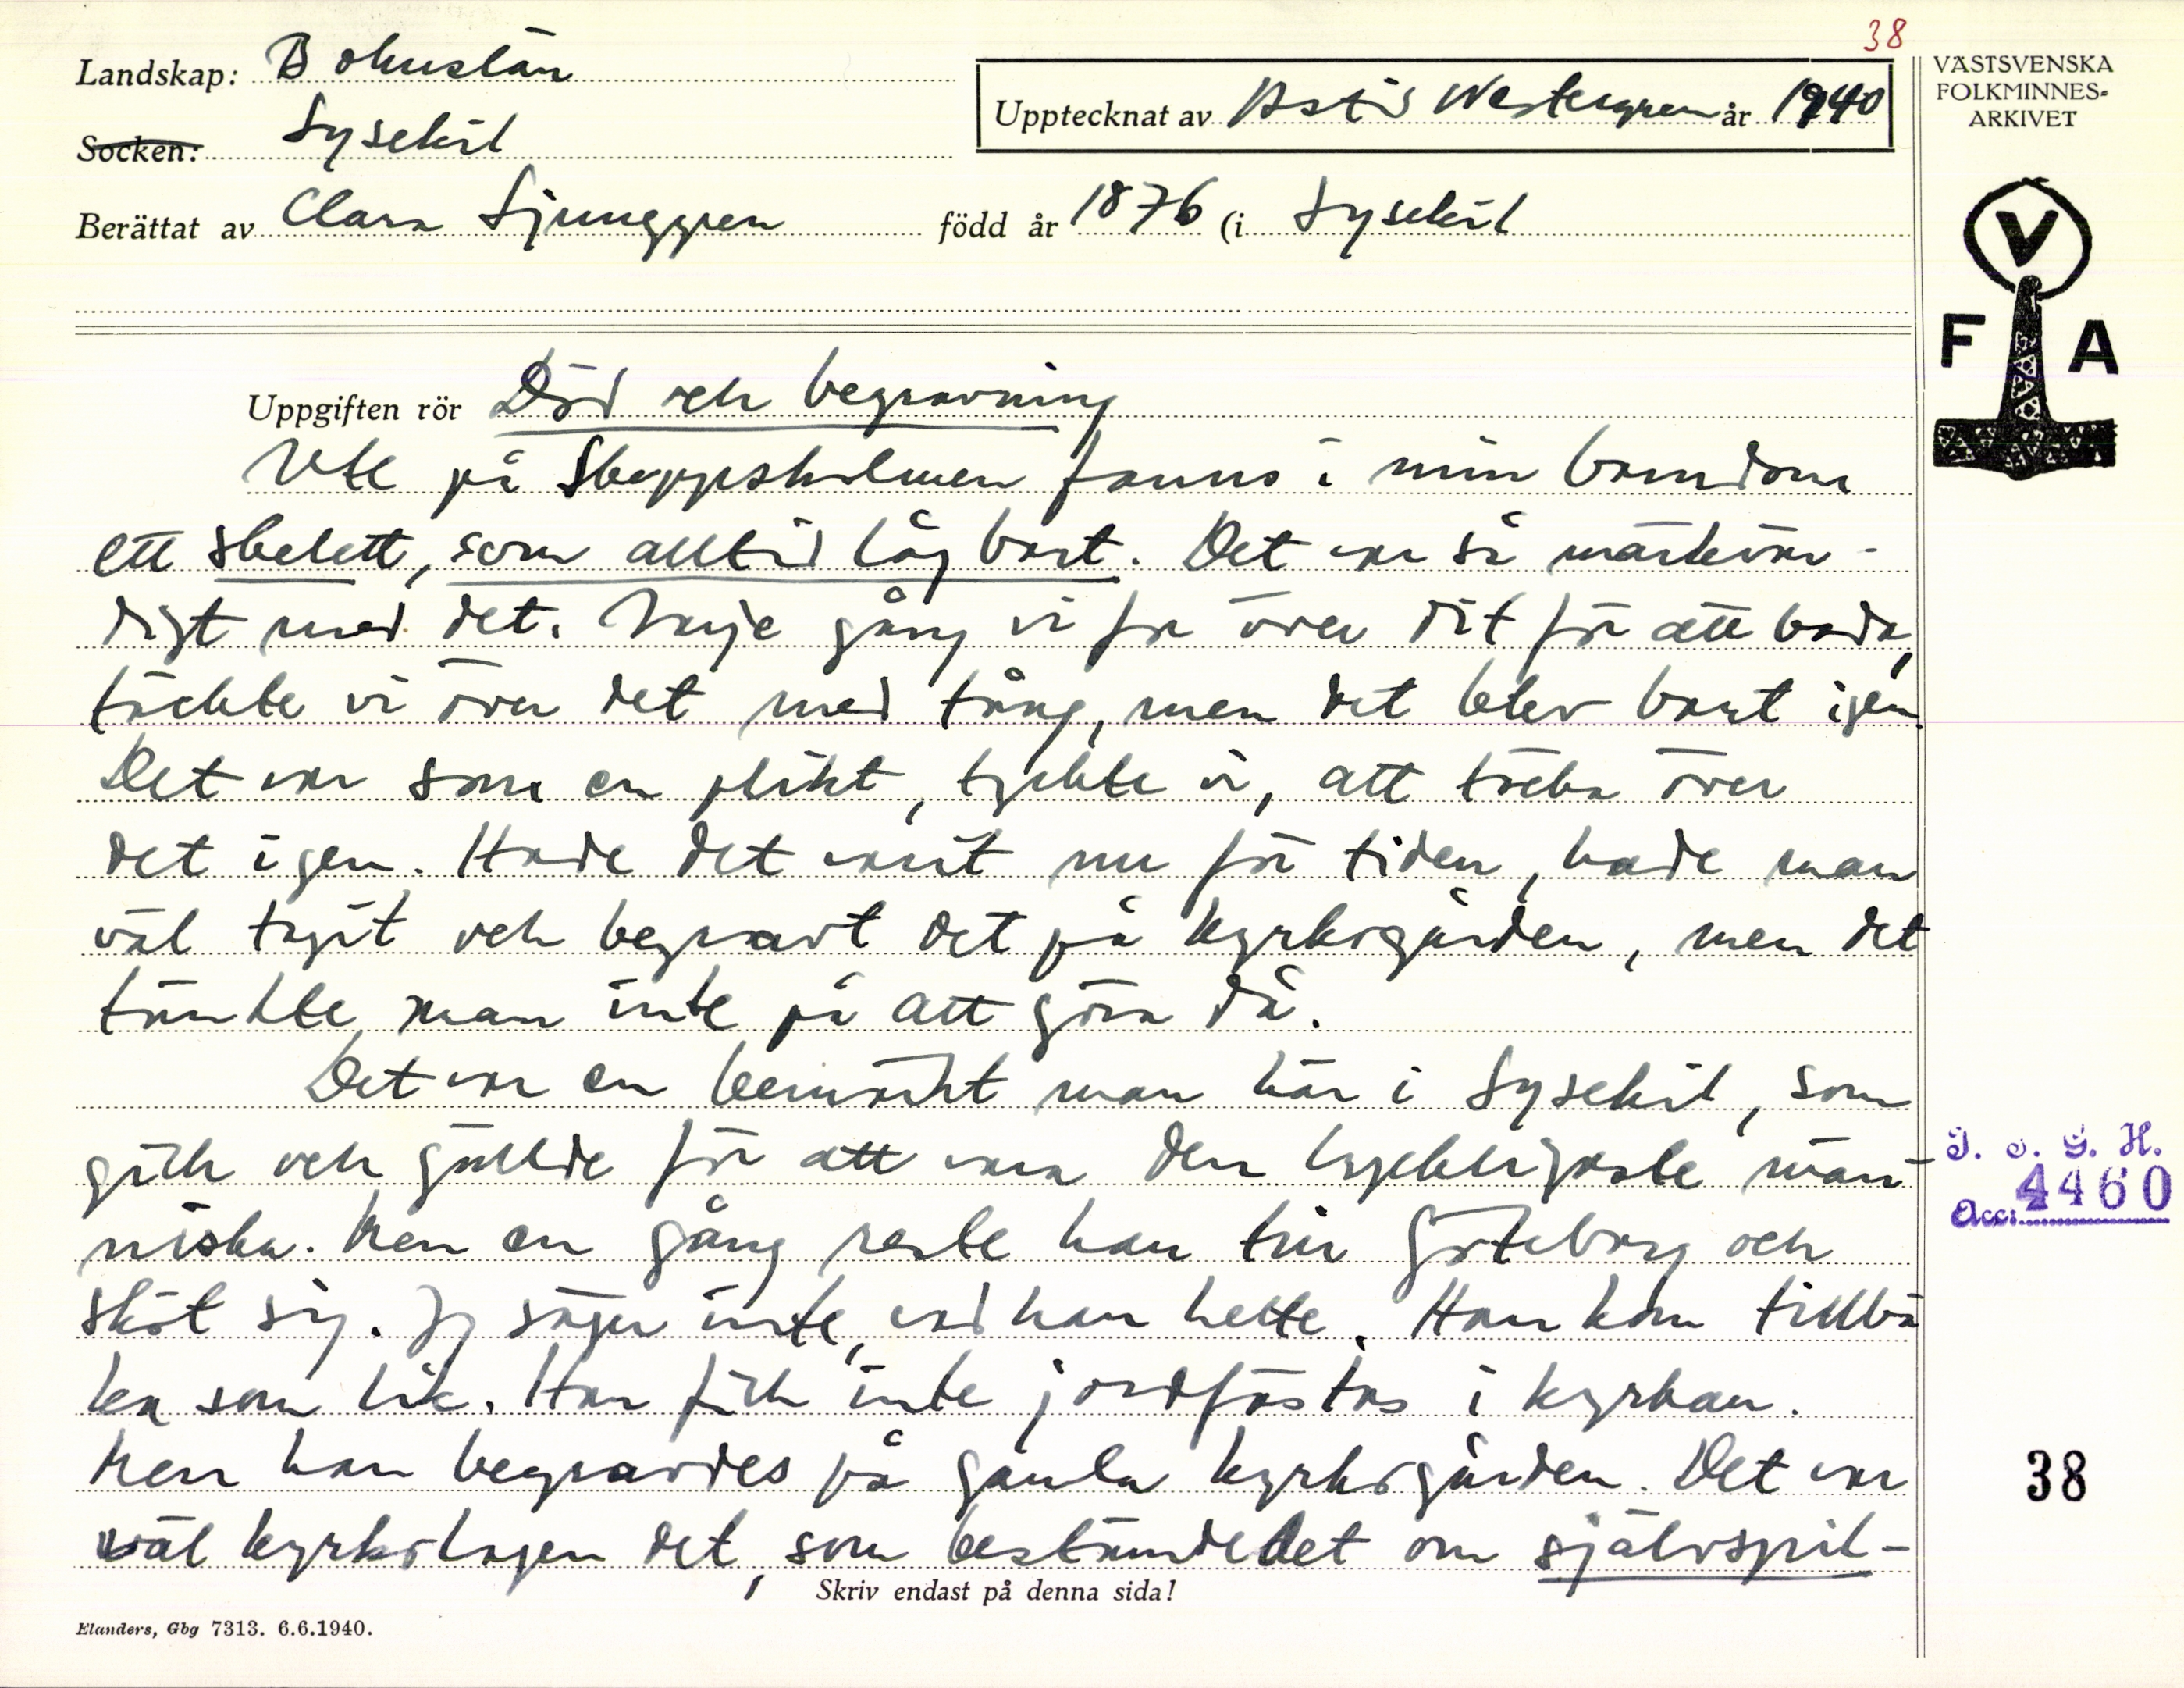 38
Landskap: Bohuslän
Socken: Lysekil
Upptecknat av Astis Westergren år 1940
Berättat av Clara Ljunggren född år 1876 (i Lysekil
VÄSTSVENSKA
FOLKMINNES-
ARKIVET
V
F A
Uppgiften rör Död och begravning
Ute på Skeppsholmen fanns i min barndom
ett skelett, som alltid låg bart. Det var så märkvär-
digt med det. Varje gång vi for över dit för att bada,
täckte vi över det med tång, men det blev bart igen.
Det var som en plikt, tyckte vi, att täcka över
det igen. Hade det varit nu för tiden, hade man
väl tagit och begravt det på kyrkogården, men det
tänkte man inte på att göra då.
Det var en bemärkt man här i Lysekil, som
gick och gällde för att vara den lyckligaste män-
niska. Men en gång reste han till Göteborg och
sköt sig. Jag säger inte, vad han hette. Han kom tillba
ka som lik. Han fick inte jordfästas i kyrkan.
Men han begravdes på gamla kyrkogården. Det var
väl kyrkolagen det, som bestämde det om självspil-
I. o. G. H.
Acc: 4460
38
Skriv endast på denna sida!
Elanders, Gbg 7313. 6.6.1940.